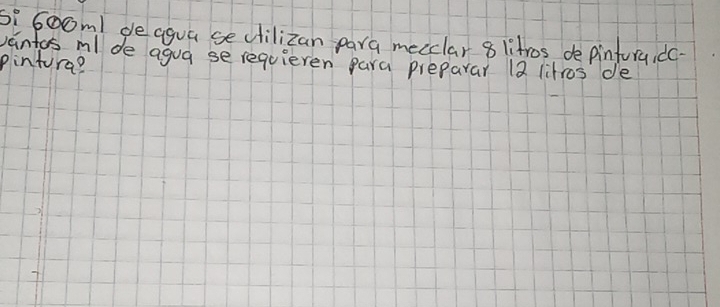 Si 600ml de agua se utilizan para mezclar 8 litros de pintura, ¿c-
uántos ml de agua se requieren para preparar 12 litros de
pintura?